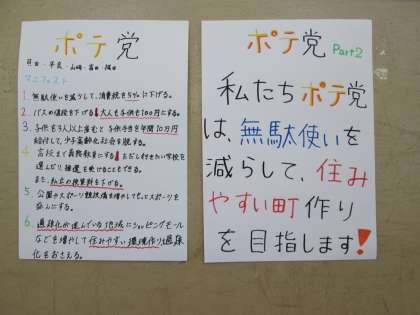 ポテ党
マニフェスト
1. 無駄使いを減らして、消費税を5%に下げる。
2. バスの値段を下げる 大人も子供も100円にする。
3. 子供を3人以上産むと子供手当を年間10万円
給付して、少子高齢化社会を脱する。
4. 高校まで義務教育にする
選んだり抽選を受けることもできる。
また、私立の授業料を下げる。
5. 公園やスポーツ競技場を増やしてもっとスポーツを
盛んにする。
6. 過疎化が進んでいる地域にショッピングモール
などを増やして住みやすい環境作り過疎
化をおさえる。
ポテ党 Part2
私たちポテ党
は、無駄使いを
減らして、住み
やすい町作り
を目指します!